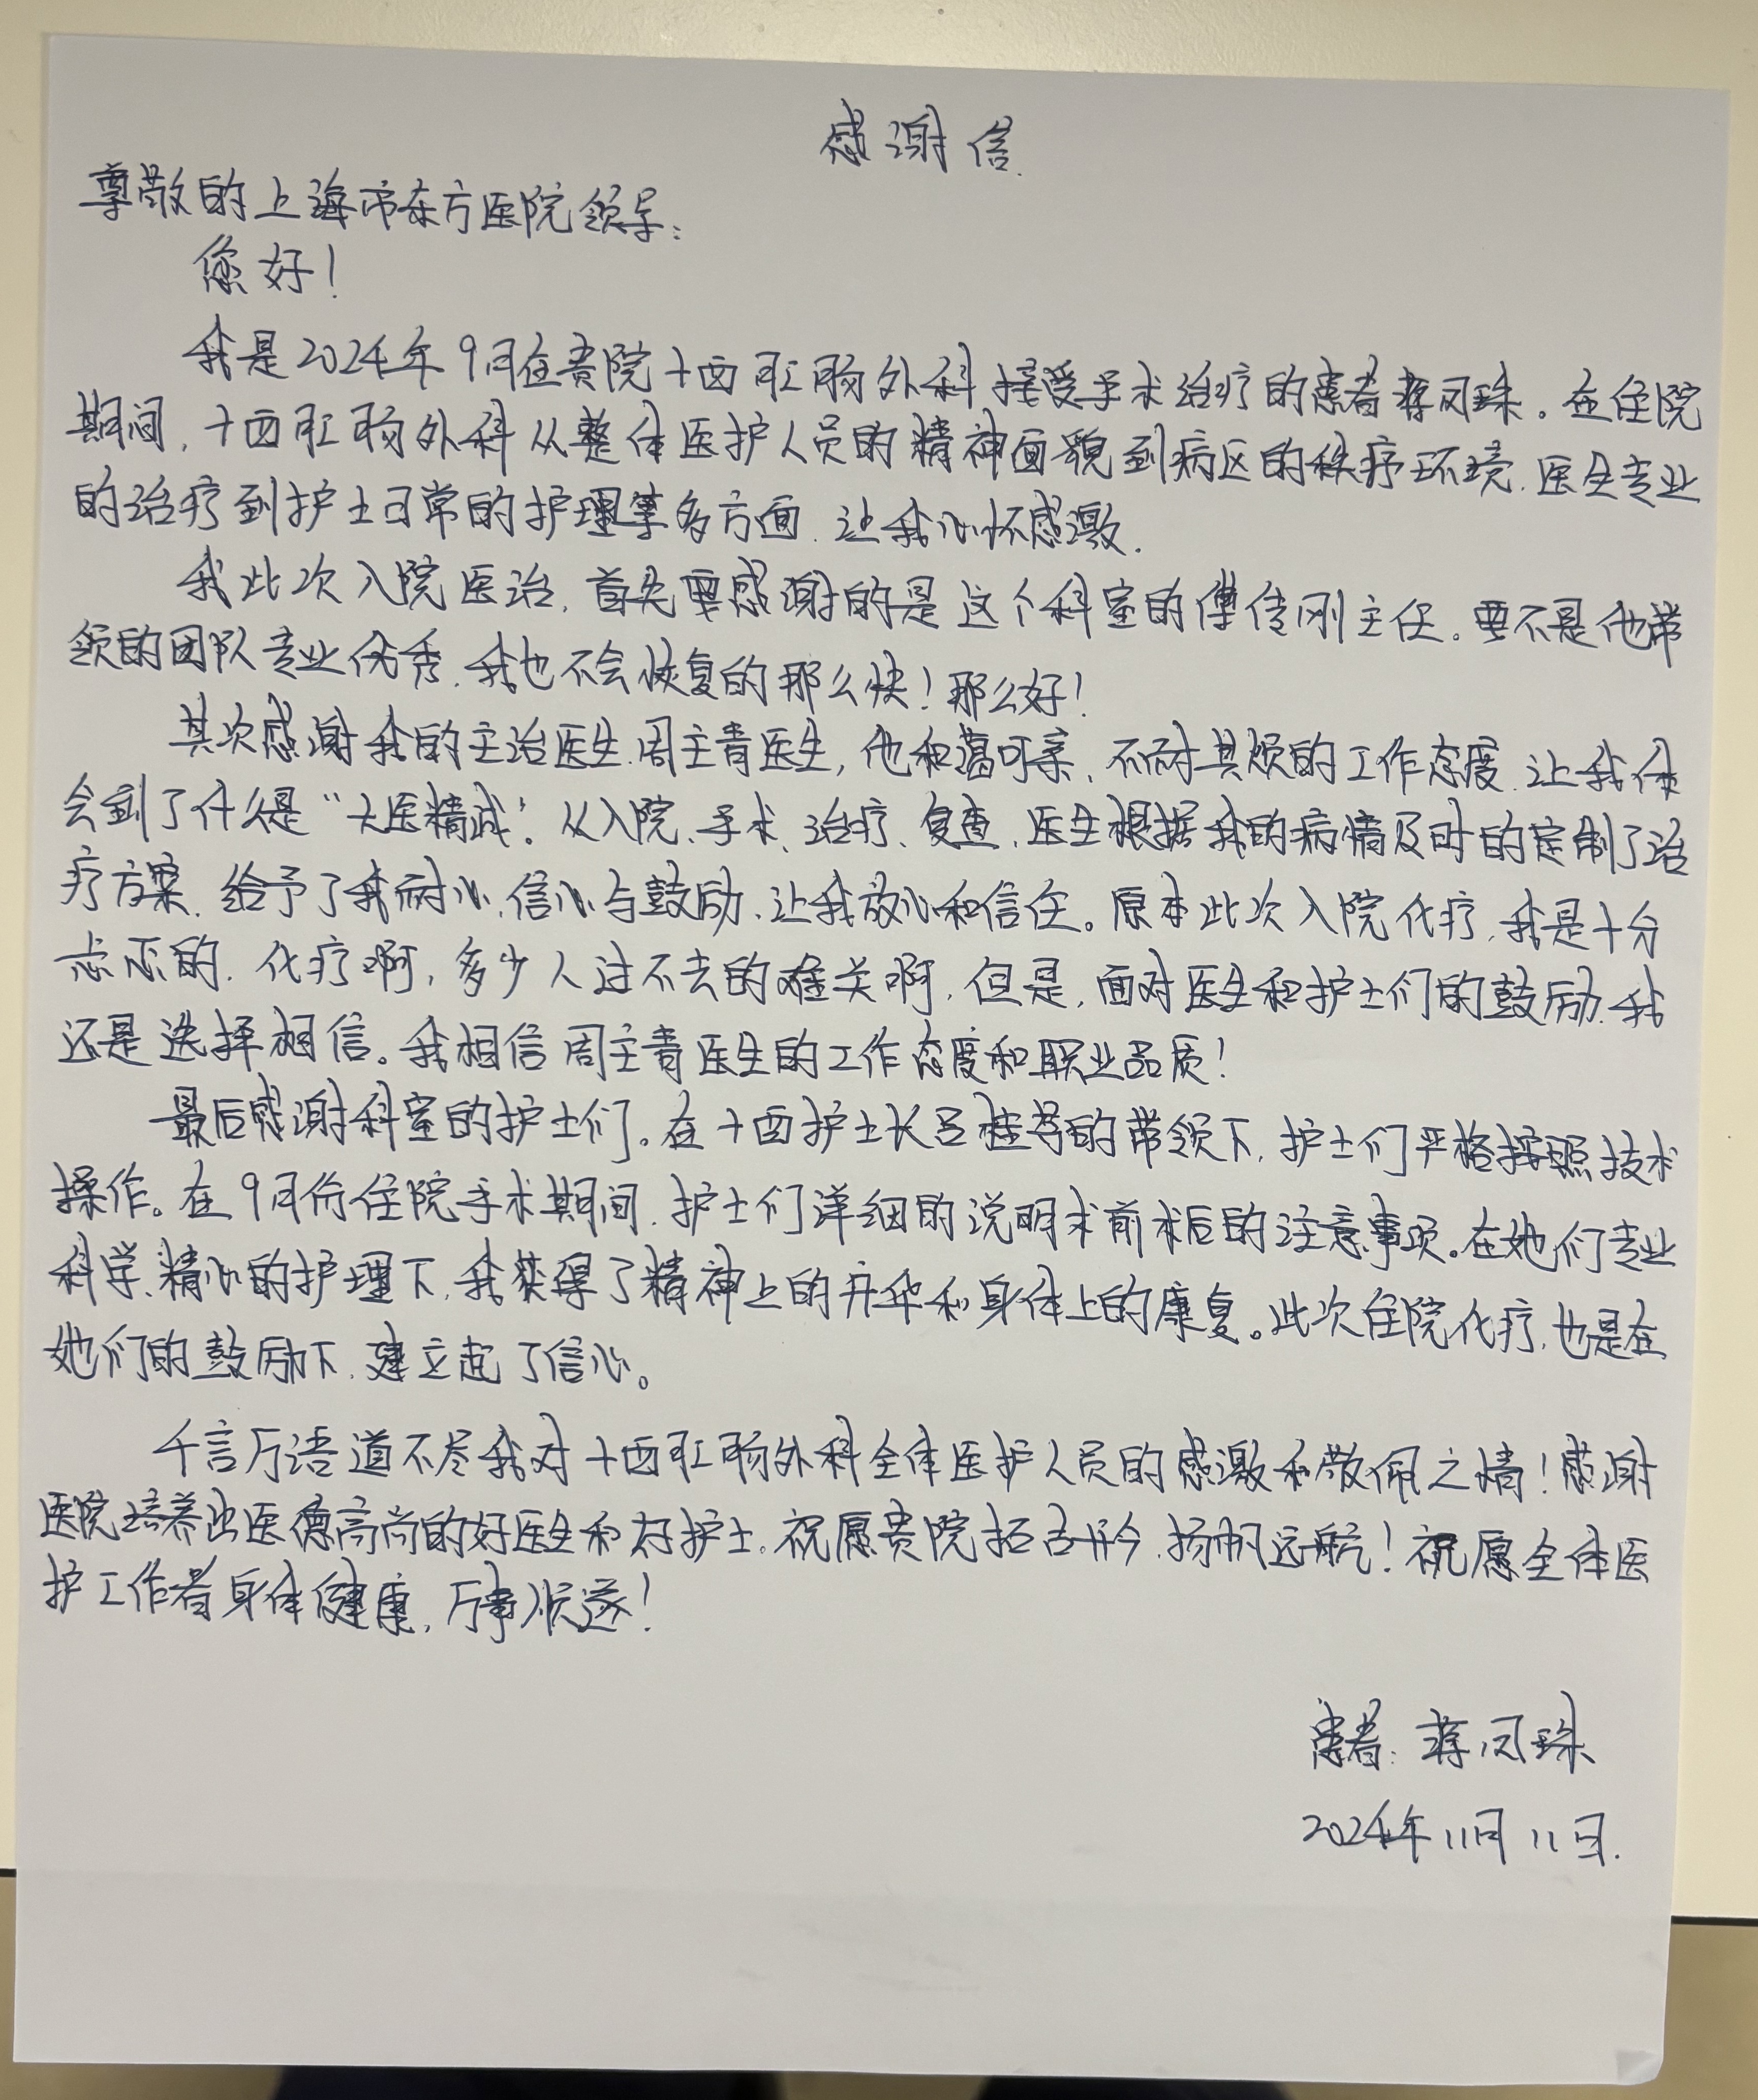 感谢信.
尊敬的上海市东方医院领导：
您好！
我是2024年9月在贵院十西肛肠外科接受手术治疗的患者蒋凤珠。在住院
期间，十西肛肠外科从整体医护人员的精神面貌到病区的秩序环境、医生专业
的治疗到护士日常的护理等多方面、让我心怀感激.
我此次入院医治，首先要感谢的是这个科室的傅传刚主任。要不是他带
领的团队专业优秀、我也不会恢复的那么快！那么好！
其次感谢我的主治医生、周主青医生，他和蔼可亲、不耐其烦的工作态度、让我体
会到了什么是“大医精诚”。从入院、手术、治疗、复查、医生根据我的病情及时的定制了治
疗方案、给予了我耐心、信心与鼓励、让我放心和信任。原本此次入院化疗，我是十分
忐忑的，化疗啊，多少人过不去的难关啊，但是，面对医生和护士们的鼓励、我
还是选择相信。我相信周主青医生的工作态度和职业品质！
最后感谢科室的护士们。在十西护士长吕桂芬的带领下，护士们严格按照技术
操作。在9月份住院手术期间、护士们详细的说明术前术后的注意事项。在她们专业
科学、精心的护理下，我获得了精神上的升华和身体上的康复。此次住院化疗，也是在
她们的鼓励下、建立起了信心。
千言万语道不尽我对十西肛肠外科全体医护人员的感激和敬佩之情！感谢
医院培养出医德高尚的好医生和好护士。祝愿贵院拓古开今、扬帆远航！祝愿全体医
护工作者身体健康，万事顺遂！
患者：蒋凤珠
2024年11月11日.